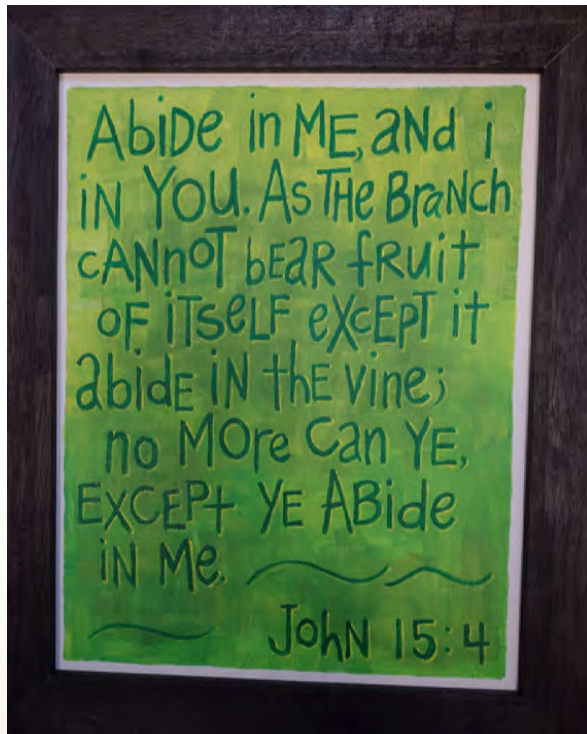 AbiDe in ME, aNd i
iN YOU. As THe BraNch
cANnOT bEaR fRuit
OF iTseLF eXcEPT it
abidE iN thE vine;
no MOre Can YE,
EXCEPt YE ABide
iN Me.
JohN 15:4